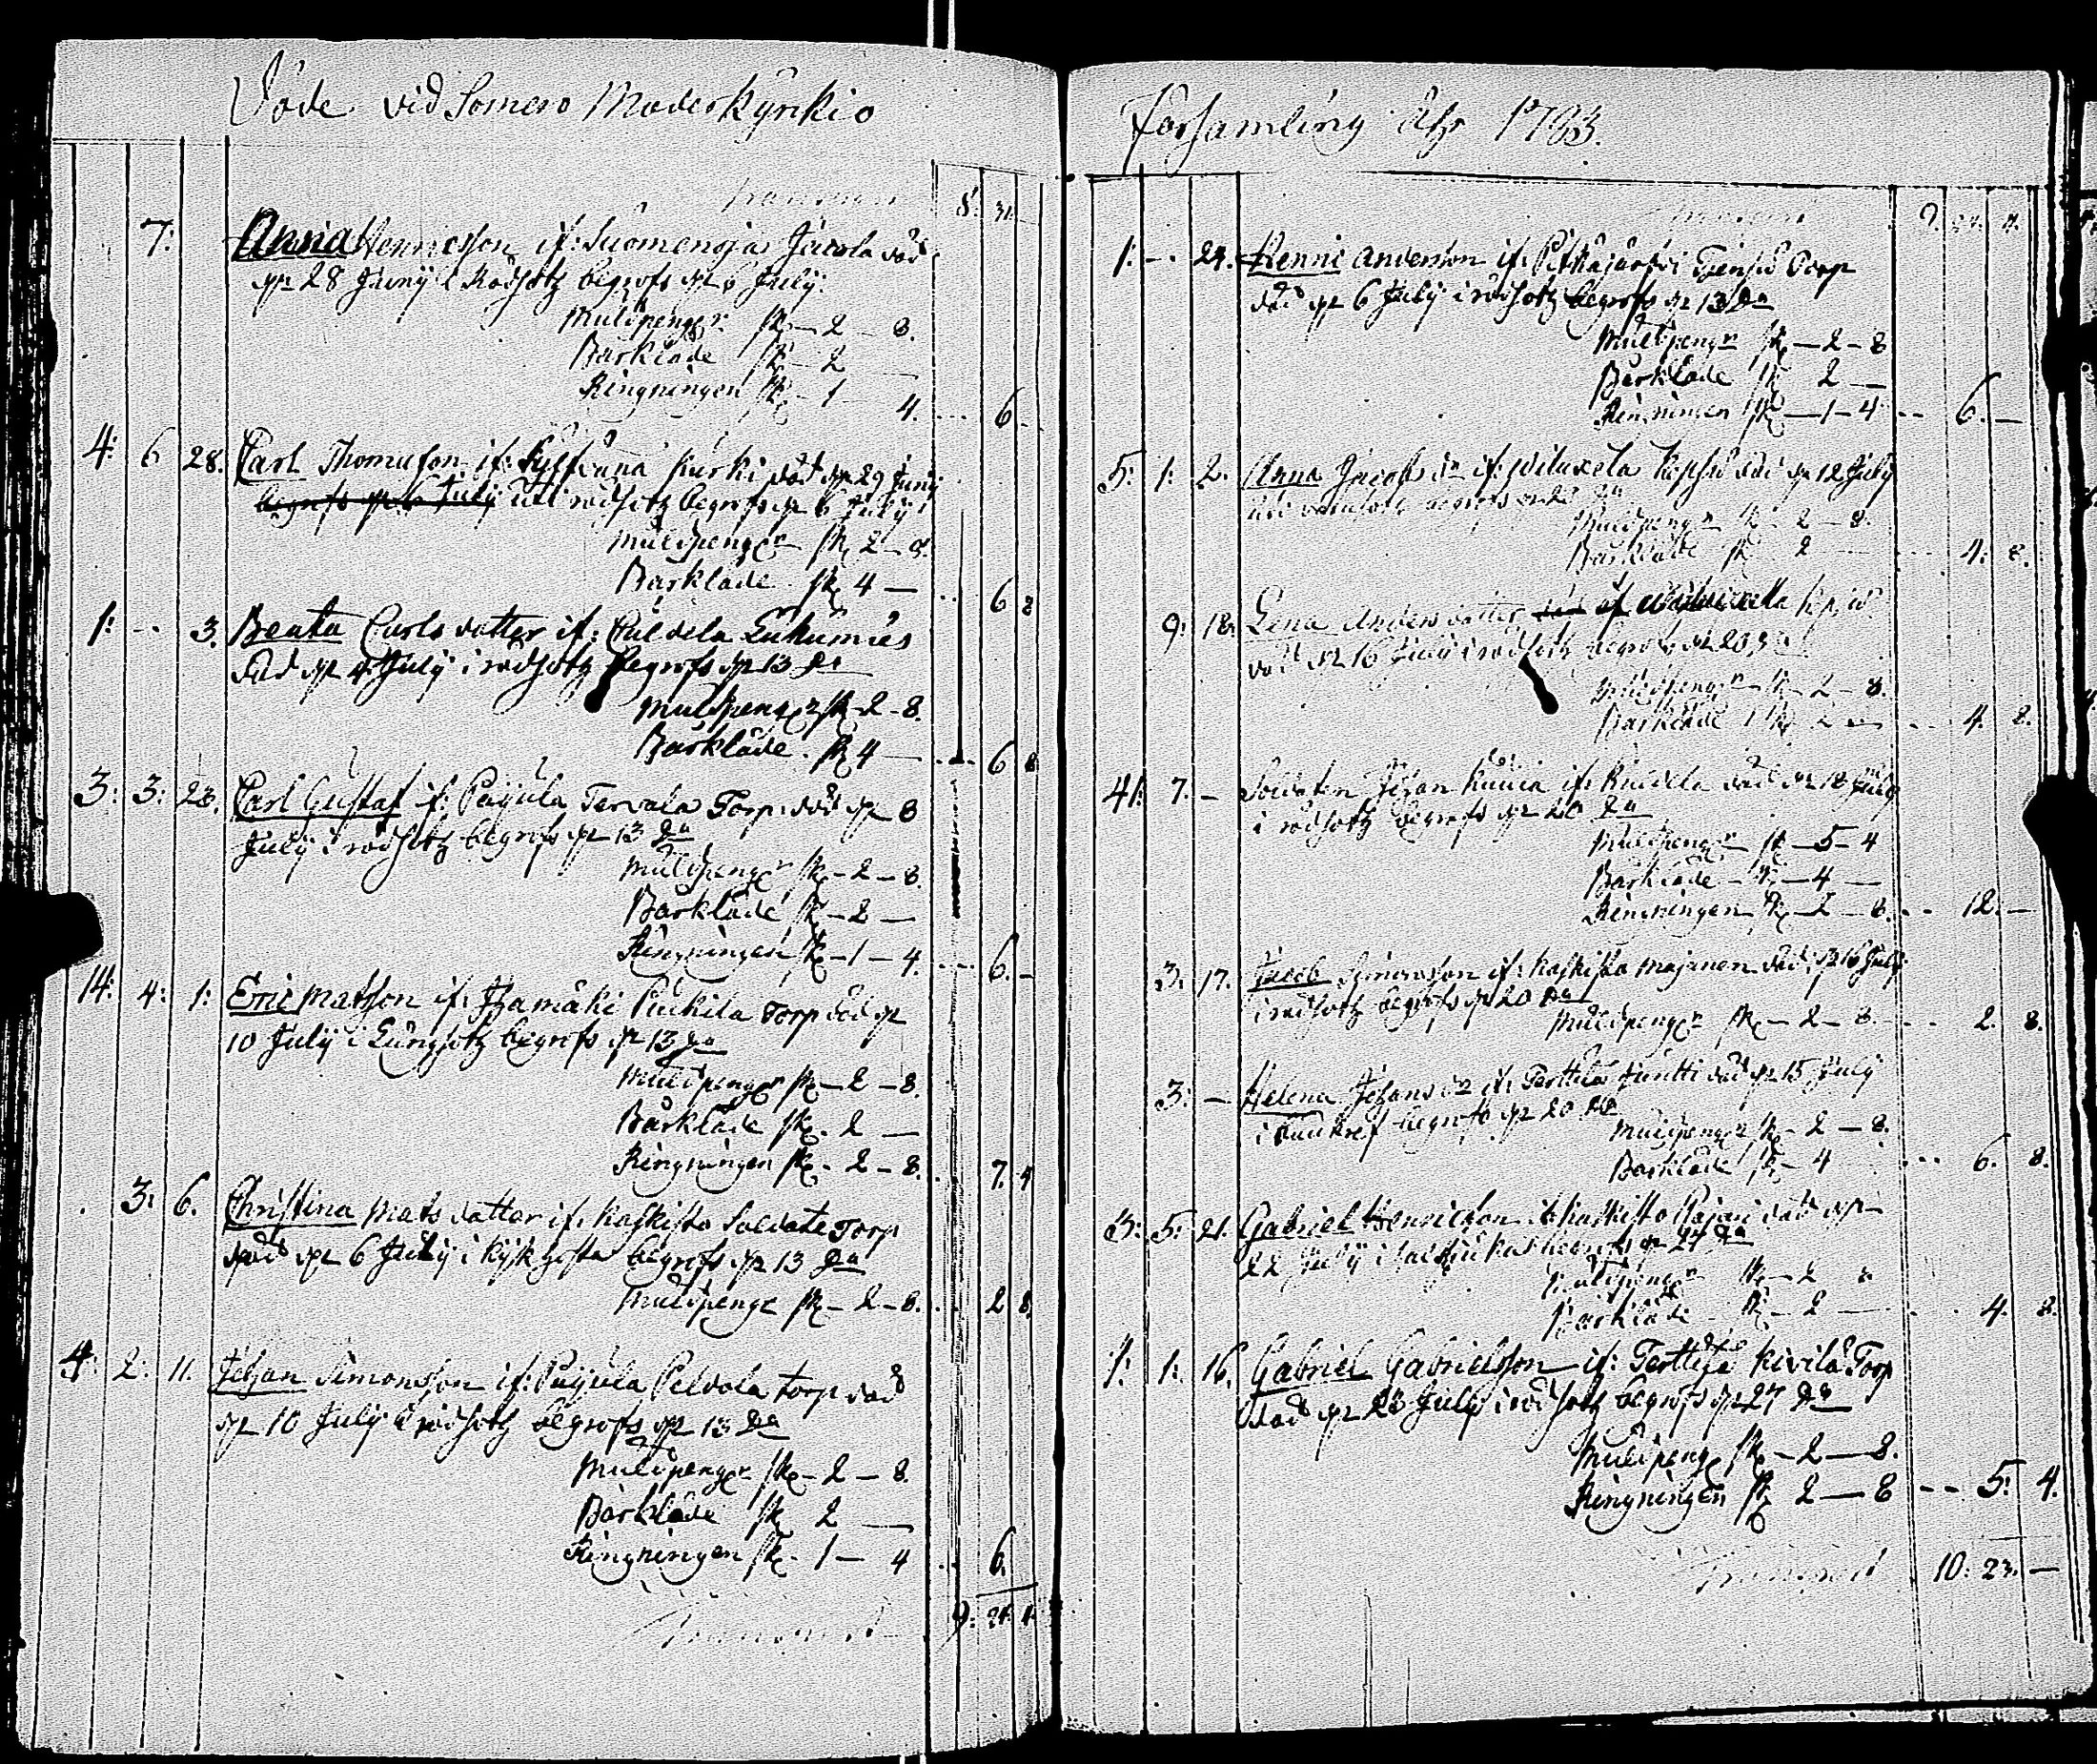 Döde vid Somero Moderkyrkio
Transport 8: 31.
7: Anna Henricsson if: Suomenoja Jacola död
dn 28 Junÿ i Rödsotz begrofs dn 6 Julÿ.
Muldpengr sk – 2 – 8.
Bårkläde sk – 2 –
Ringningen sk – 1 – 4. ... 6 –
4: 6 28. Carl Thomasson if: Kurki död dn 29 Junÿ
begrofs dn 6 Julÿ uti rödsotz begrofs dn 6 Julÿ
Muldpengr sk 2 – 8.
Bårkläde sk 4 – ... 6 8
1: -- 3. Beata Carls datter if: Palikais
död dn 4 Julÿ i rödsotz begrofs dn 13 do
Muldpengr sk – 2 – 8.
Bårkläde sk 4 – ... 6 8
3: 3: 23. Carl Gustaf if: Pajula Tervala Torp död dn 8
Julÿ i rödsotz begrofs dn 13 do
Muldpengr sk – 2 – 8.
Bårkläde sk – 2 –
Ringningen sk – 1 – 4. ... 6. –
14: 4: 1: Eric Matsson if: Häntälä Torp död dn
10 Julÿ i Lungsotz begrofs dn 13 do
Muldpengr sk – 2 – 8.
Bårkläde sk. 2 –
Ringningen sk. 2 – 8. 7. 4
3: 6. Christina Mats datter if: Kaskisto Soldate Torp
död dn 6 Julÿ i Kikhosta begrofs dn 13 do
Muldpengr sk – 2 – 8. 2 8.
4: 2: 11. Johan Simonsson if: Pajula Peldola Torp död
dn 10 Julÿ i rödsotz begrofs dn 13 do
Muldpengr sk – 2 – 8.
Bårkläde sk 2 –
Ringningen sk. 1 – 4 ... 6.
Transport 9: 24. 4.
Församling åhr 1783.
Transport 9. 24. 4.
1: -- 24. Henric Anderson if: Pitkäjärfvi Torp
död dn 6 Julÿ i rödsotz begrofs dn 13 do
Muldpengr sk – 2 – 8
Bårkläde sk 2 –
Ringningen sk – 1 – 4 -- 6. –
5: 1: 2. Anna Jacobs dr if: död dn 12 Julÿ
uti rödsotz begrofs
Muldpengr sk – 2 – 8.
Bårkläde sk 2 – ... 4. 8.
9: 18. Lena Anders datter
död dn 16 Julÿ i rödsotz begrofs dn 20 do
Muldpengr sk – 2 – 8.
Bårkläde sk 2 – ... 4. 8.
41: 7. – Soldaten Johan if: död dn 18 Julÿ
i rödsotz begrofs dn 20 do
Muldpengr sk – 5 – 4
Bårkläde – sk – 4 –
Ringningen sk – 2 – 8. ... 12. –
3. 17. Jacob Simonsson if: Kaskisto Majanen död dn 16 Julÿ
i rödsotz begrofs dn 20 do
Muldpengr sk – 2 – 8. ... 2. 8.
3: – Helena Johans dr if: Terttilä Juntti död dn 15 Julÿ
i begrofs dn 20 do
Muldpengr sk – 2 – 8.
Bårkläde sk – 4 ... 6. 8.
3: 5: 21. Gabriel Henricson if: Kaskisto död dn
22 Julÿ i begrofs dn 27 do
Muldpengr sk – 2 8
Bårkläde sk – 2 – ... 4. 8.
1: 1: 16. Gabriel Gabrielsson if: Terttilä Kivilä Torp
död dn 23 Julÿ i rödsotz begrofs dn 27 do
Muldpengr sk – 2 – 8.
Ringningen sk 2 – 8 -- 5: 4.
Transport 10: 23. –